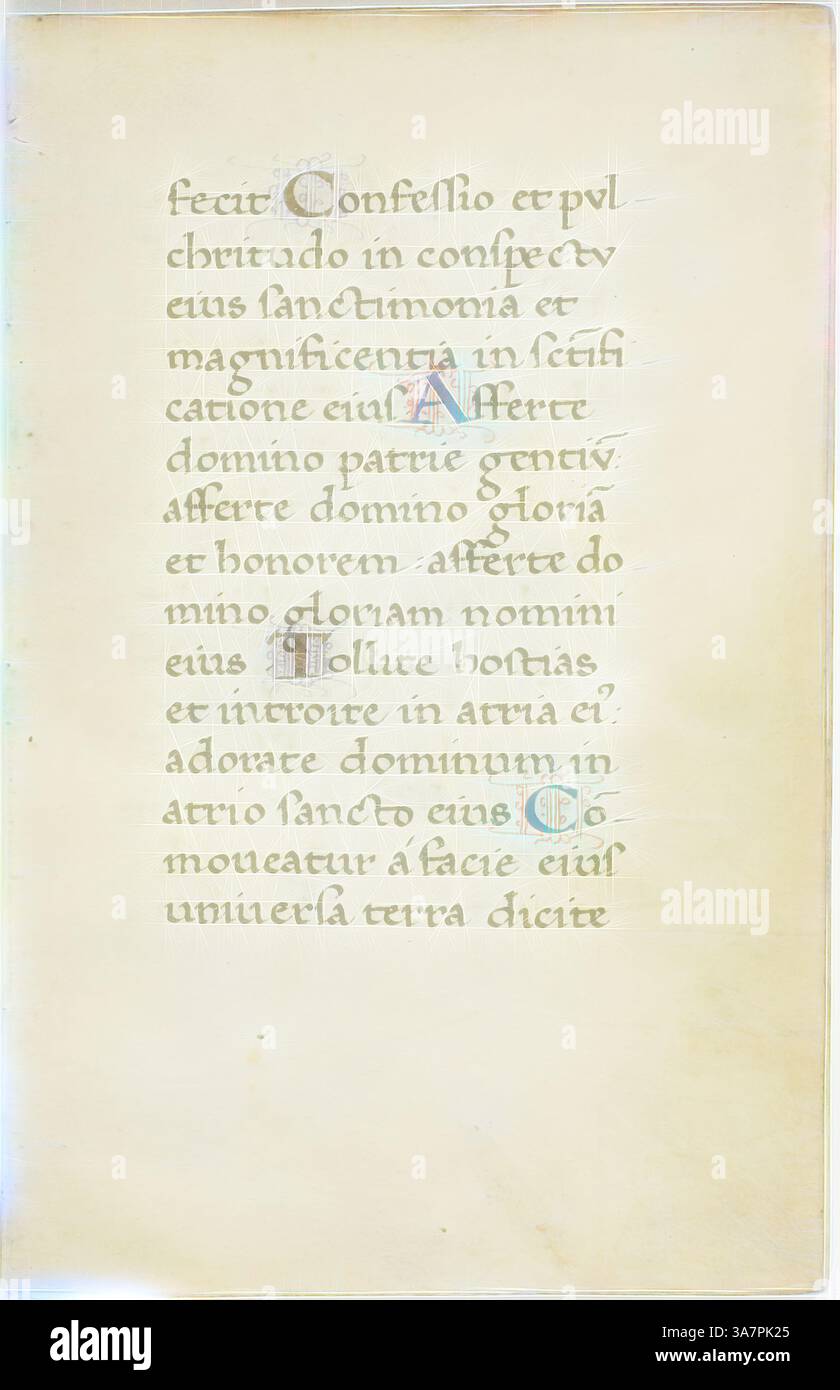 fecit Confessio et pul
chritudo in conspectu
eius sanctimonia et
magnificentia in sctīfi
catione eius Afferte
domino patrie gentiū:
afferte domino gloriā
et honorem : afferte do
mino gloriam nomini
eius Tollite hostias
et introite in atria ei᾽:
adorate dominum in
atrio sancto eius Cō
moueatur á facie eius
uniuersa terra dicite
alamy
Image ID: 3A7PK25
www.alamy.com